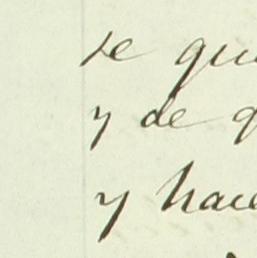 se qu
y de q
y hace